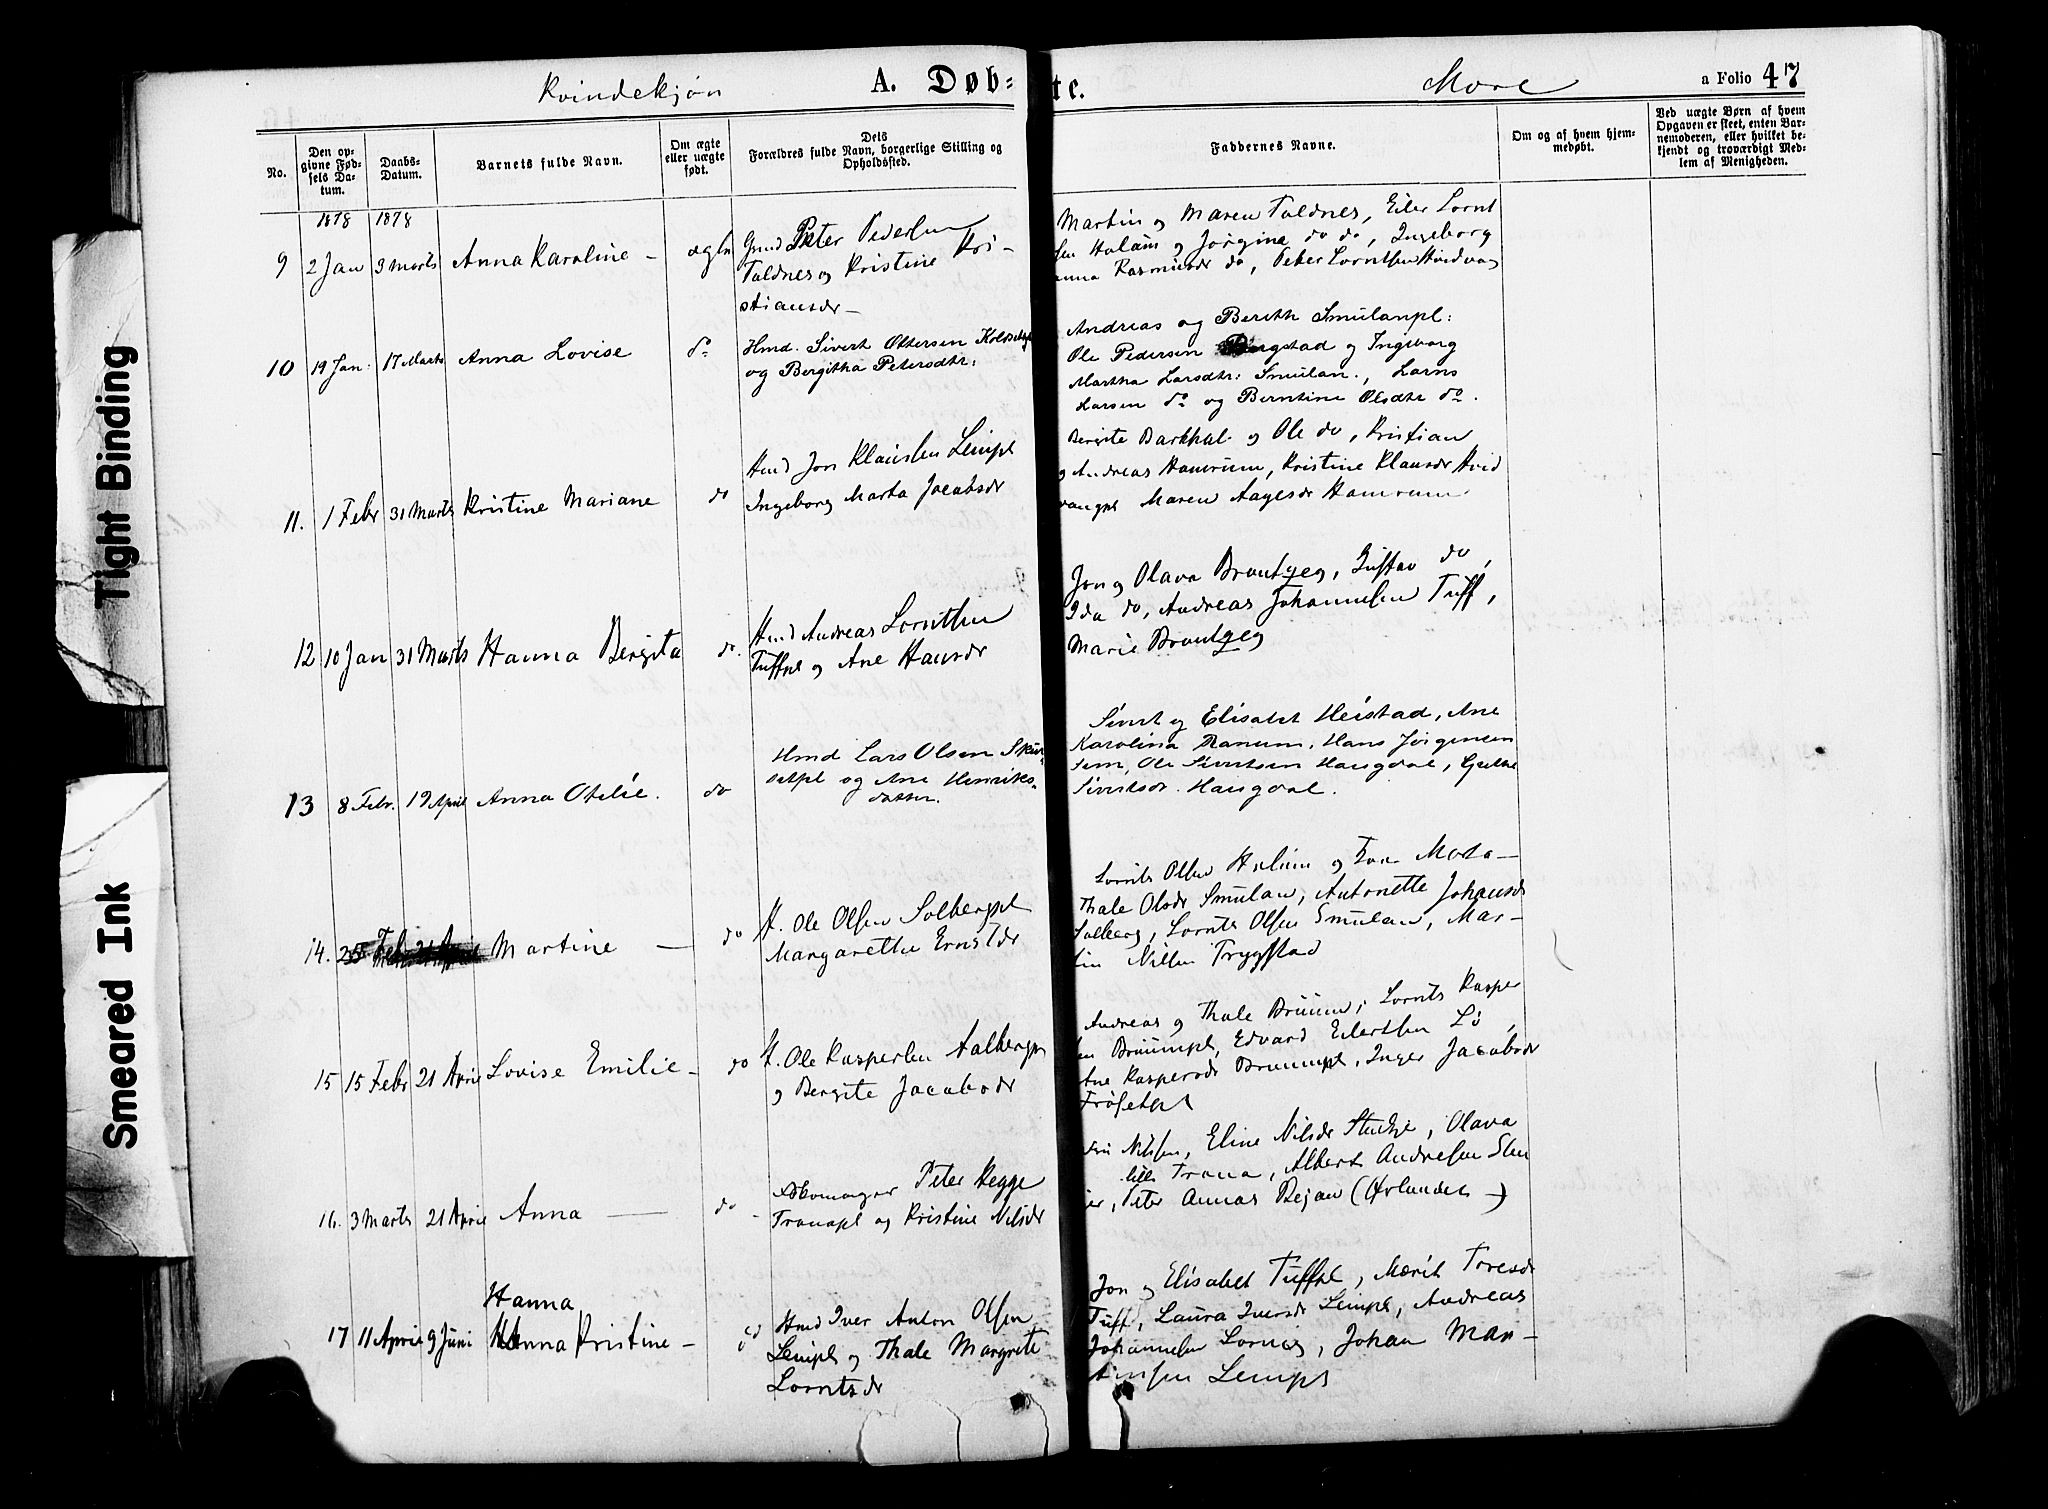 Kvindekjøn A. Døb- te. Mære a Folio 47
No.
Den op-
givne Fød-
sels Da-
tum.
Daabs-
Datum.
Barnets fulde Navn.
Om ægte
eller uægte
født.
Dets
Forældres fulde Navn, borgerlige Stilling og
Opholdssted.
Faddernes Navne.
Om og af hvem hjem-
medøbt.
Ved uægte Børn af hvem
Opgaven er skeet, enten Bar-
nemoderen, eller hvilket be-
kjendt og troværdigt Med-
lem af Menigheden.
1878 1878
9 2 Jan 3 Marts Anna Karoline –
Peter Pedersen
Toldnes og Kristine Kri-
stiansdr –
Martin og Maren Toldnes, Eiler Lornt
sen Holam og Jørgine do do, Ingeborg
anna Rasmusdr do, Peter Lorntsen
10 19 Jan: 17 Marts Anna Lovise do
Hmd. Sivert Ottersen
og Bergitha Petersdtr:
Andreas og Bereth Smulanpl:
Ole Pedersen Bergstad og Ingeborg
Martha Larsdtr: Smulan., Larns
Larsen do og Berntine Olsdtr do.
11. 1 Febr 31 Marts Kristine Mariane do
Hmd Jon Klausen Leinpl
Ingeborg Marta Jacobsdr
Bergite Barkhal og Ole do, Kristian
og Andreas Hamrum, Kristine Klausdr Hvid
vangpl Maren Aagesdr Hamrum.
12 10 Jan 31 Marts Hanna Bergita do.
Hmd Andreas Lorntsen
Tuffpl og Ane Hansdr
Jon og Olava Brandtzeg, Gustav do,
Ida do, Andreas Johannesen Tuff,
Marie Brandtzeg
13 8 Febr. 19 April Anna Otelie. do
Hmd Lars Olsen
og Ane Henriks-
datter.
Sivert og Elisabet Heistad, Ane
Karolina Ranum, Hans Jørgensen
Lein, Ole Sivertsen Haugdal,
Sivertsdr. Haugdal.
14. 25 Febr 21 April Martine – do
H. Ole Olsen Solbergpl
Margarethe Ernstdr
Lornts Olsen Holum og Marta –
Thale Olsdr Smulan, Antonette Johansdr
Solberg, Lornts Olsen Smulan, Mar-
tin Nilsen Trygstad
15 15 Febr 21 April Lovise Emilie – do
H. Ole Kaspersen Aalbergpl
og Bergite Jacobsdr
Andreas og Thale Bruum, Lornts Kasper
sen Bruumpl, Edvard Eilertsen Lø,
Ane Kaspersdr Bruumpl, Inger Jacobsdr
Frøsetpl
16. 3 Marts 21 April Anna – do –
Skomager Peter Hegge
Tranapl og Kristine Nilsdr
Nilsen, Eline Nilsdr, Olava
Trana, Albert Andresen
Peter Annas Bejan (Ørlandet –)
17 11 April 9 Juni Hanna
Anna Kristine –
Hmd Iver Anton Olsen
Leinpl og Thale Margrete
Lorntsdr
Jon og Elisabet Tuffpl, Merit Toresdr
Tuff, Laura Iversdr Leinpl, Andreas
Johannesen, Johan Mar-
tinsen Leinpl
Tight Binding
Smeared Ink